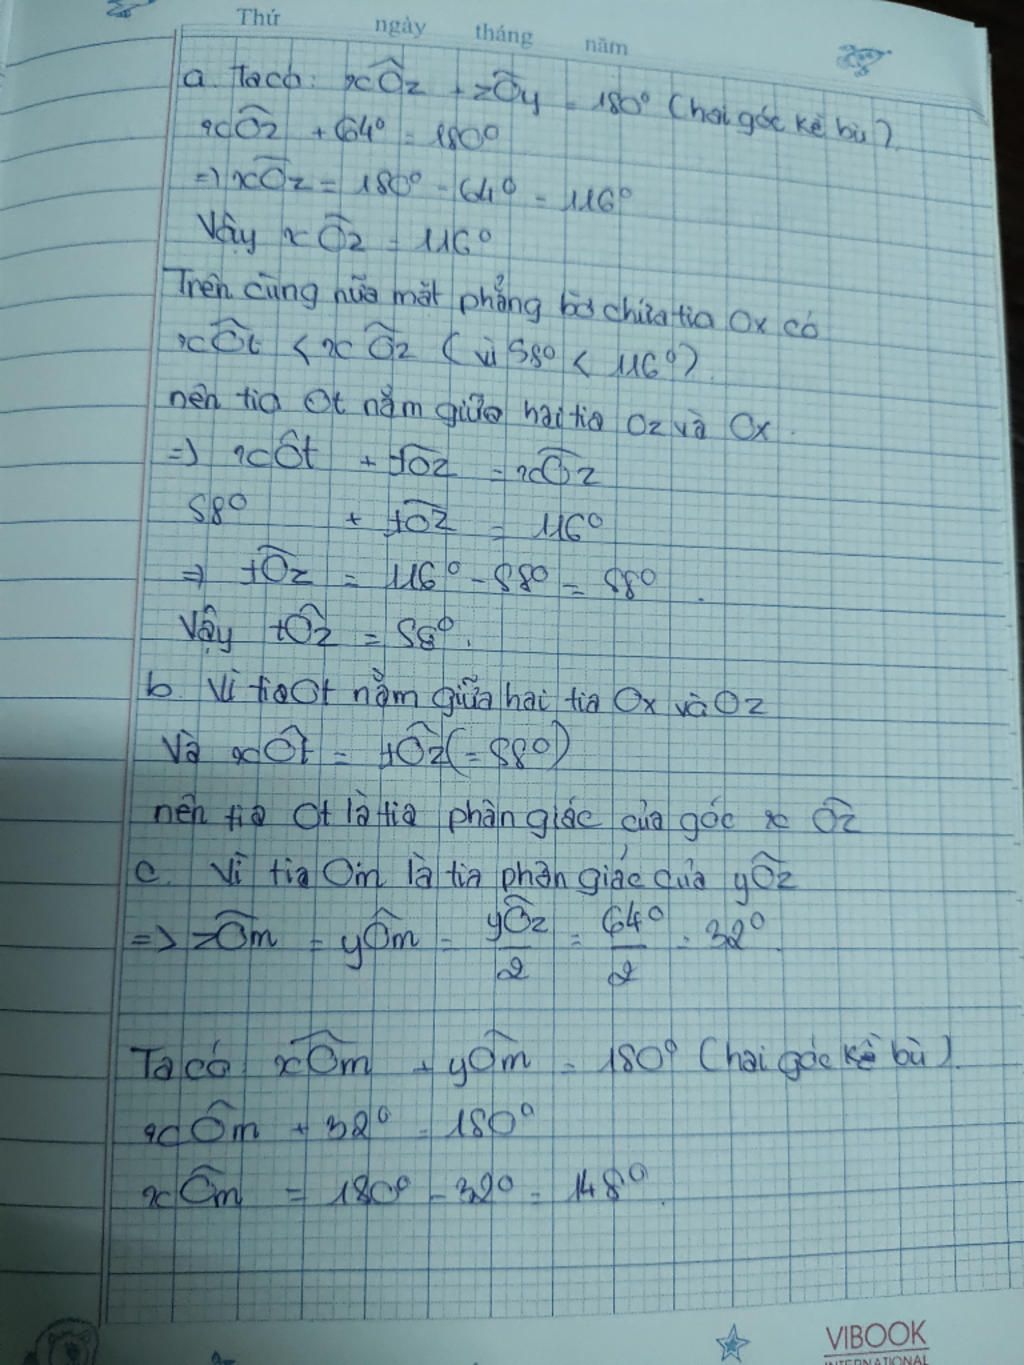 Thứ ngày tháng năm
a. Ta có: xÔz + zÔy = 180° (hai góc kề bù).
xÔz + 64° = 180°
=> xÔz = 180° - 64° = 116°
Vậy xÔz = 116°
Trên cùng nửa mặt phẳng bờ chứa tia Ox có
xÔt < xÔz (vì 58° < 116°).
nên tia Ot nằm giữa hai tia Oz và Ox.
=> xÔt + tÔz = xÔz
58° + tÔz = 116°
=> tÔz = 116° - 58° = 58°.
Vậy tÔz = 58°.
b. Vì tia Ot nằm giữa hai tia Ox và Oz
Và xÔt = tÔz (= 58°)
nên tia Ot là tia phân giác của góc xÔz
c. Vì tia Om là tia phân giác của yÔz
=> zÔm = yÔm = yÔz/2 = 64°/2 = 32°.
Ta có xÔm + yÔm = 180° (hai góc kề bù).
xÔm + 32° = 180°
xÔm = 180° - 32° = 148°.
VIBOOK
INTERNATIONAL